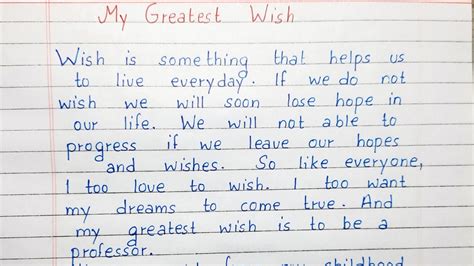 My Greatest Wish
Wish is something that helps us
to live everyday. If we do not
wish we will soon lose hope in
our life. We will not able to
progress if we leave our hopes
and wishes. So like everyone,
I too love to wish. I too want
my dreams to come true. And
my greatest wish is to be a
professor.
my childhood